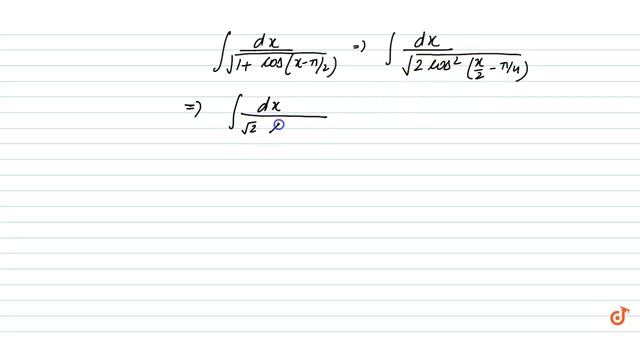 ∫ dx / √(1 + cos(x-π/2)) => ∫ dx / √(2 cos² (x/2 - π/4))
=> ∫ dx / √2